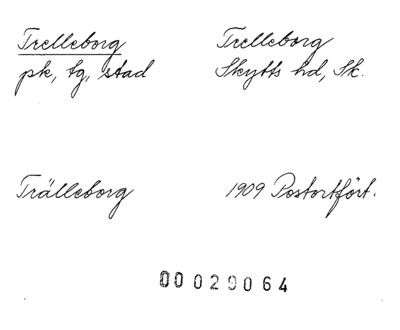 Trelleborg
pk, tg, stad
Trelleborg
Skytts hd, Sk.
Trälleborg
1909 Postortfört.
00029064